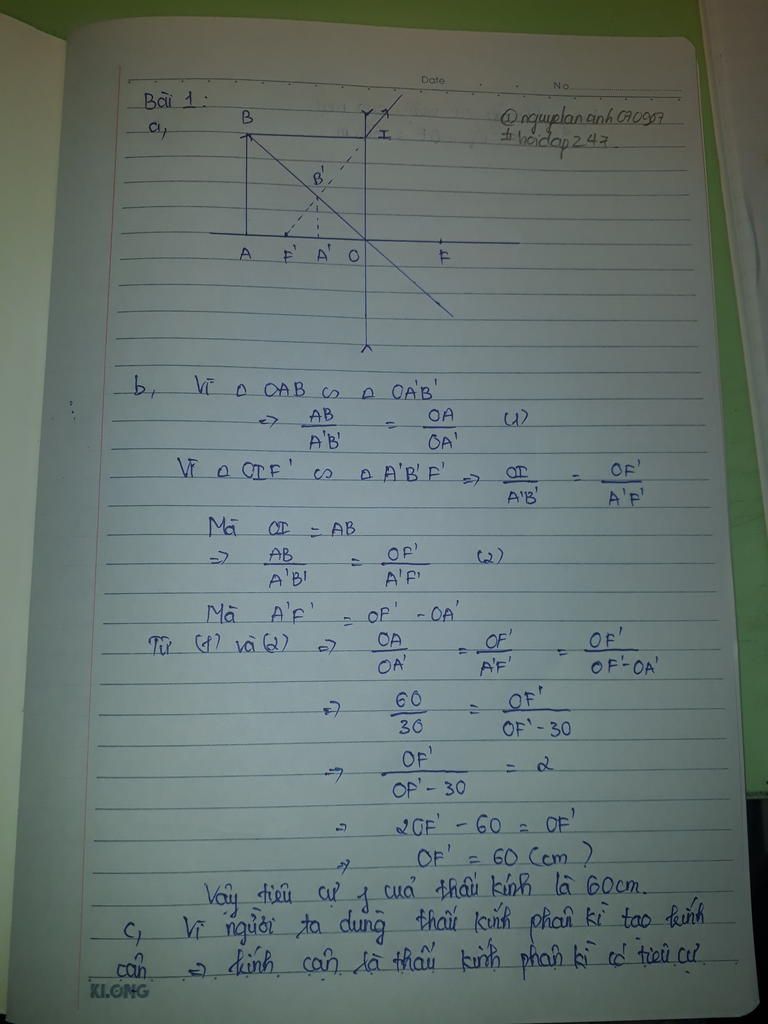 Date
No
Bài 1:
@nguyelananh070907
# hoidap247.
a,
B
I
B'
A F' A' O F
b, Vì △ OAB ∽ △ OA'B'
=> AB/A'B' = OA/OA' (1)
Vì △ OIF' ∽ △ A'B'F' => OI/A'B' = OF'/A'F'
Mà OI = AB
=> AB/A'B' = OF'/A'F' (2)
Mà A'F' = OF' - OA'
Từ (1) và (2) => OA/OA' = OF'/A'F' = OF'/OF'-OA'
=> 60/30 = OF'/OF'-30
=> OF'/OF'-30 = 2
=> 2OF' - 60 = OF'
=> OF' = 60 (cm)
Vậy tiêu cự f của thấu kính là 60cm.
c, Vì người ta dùng thấu kính phân kì tạo kính
cận => kính cận là thấu kính phân kì có tiêu cự
KLONG